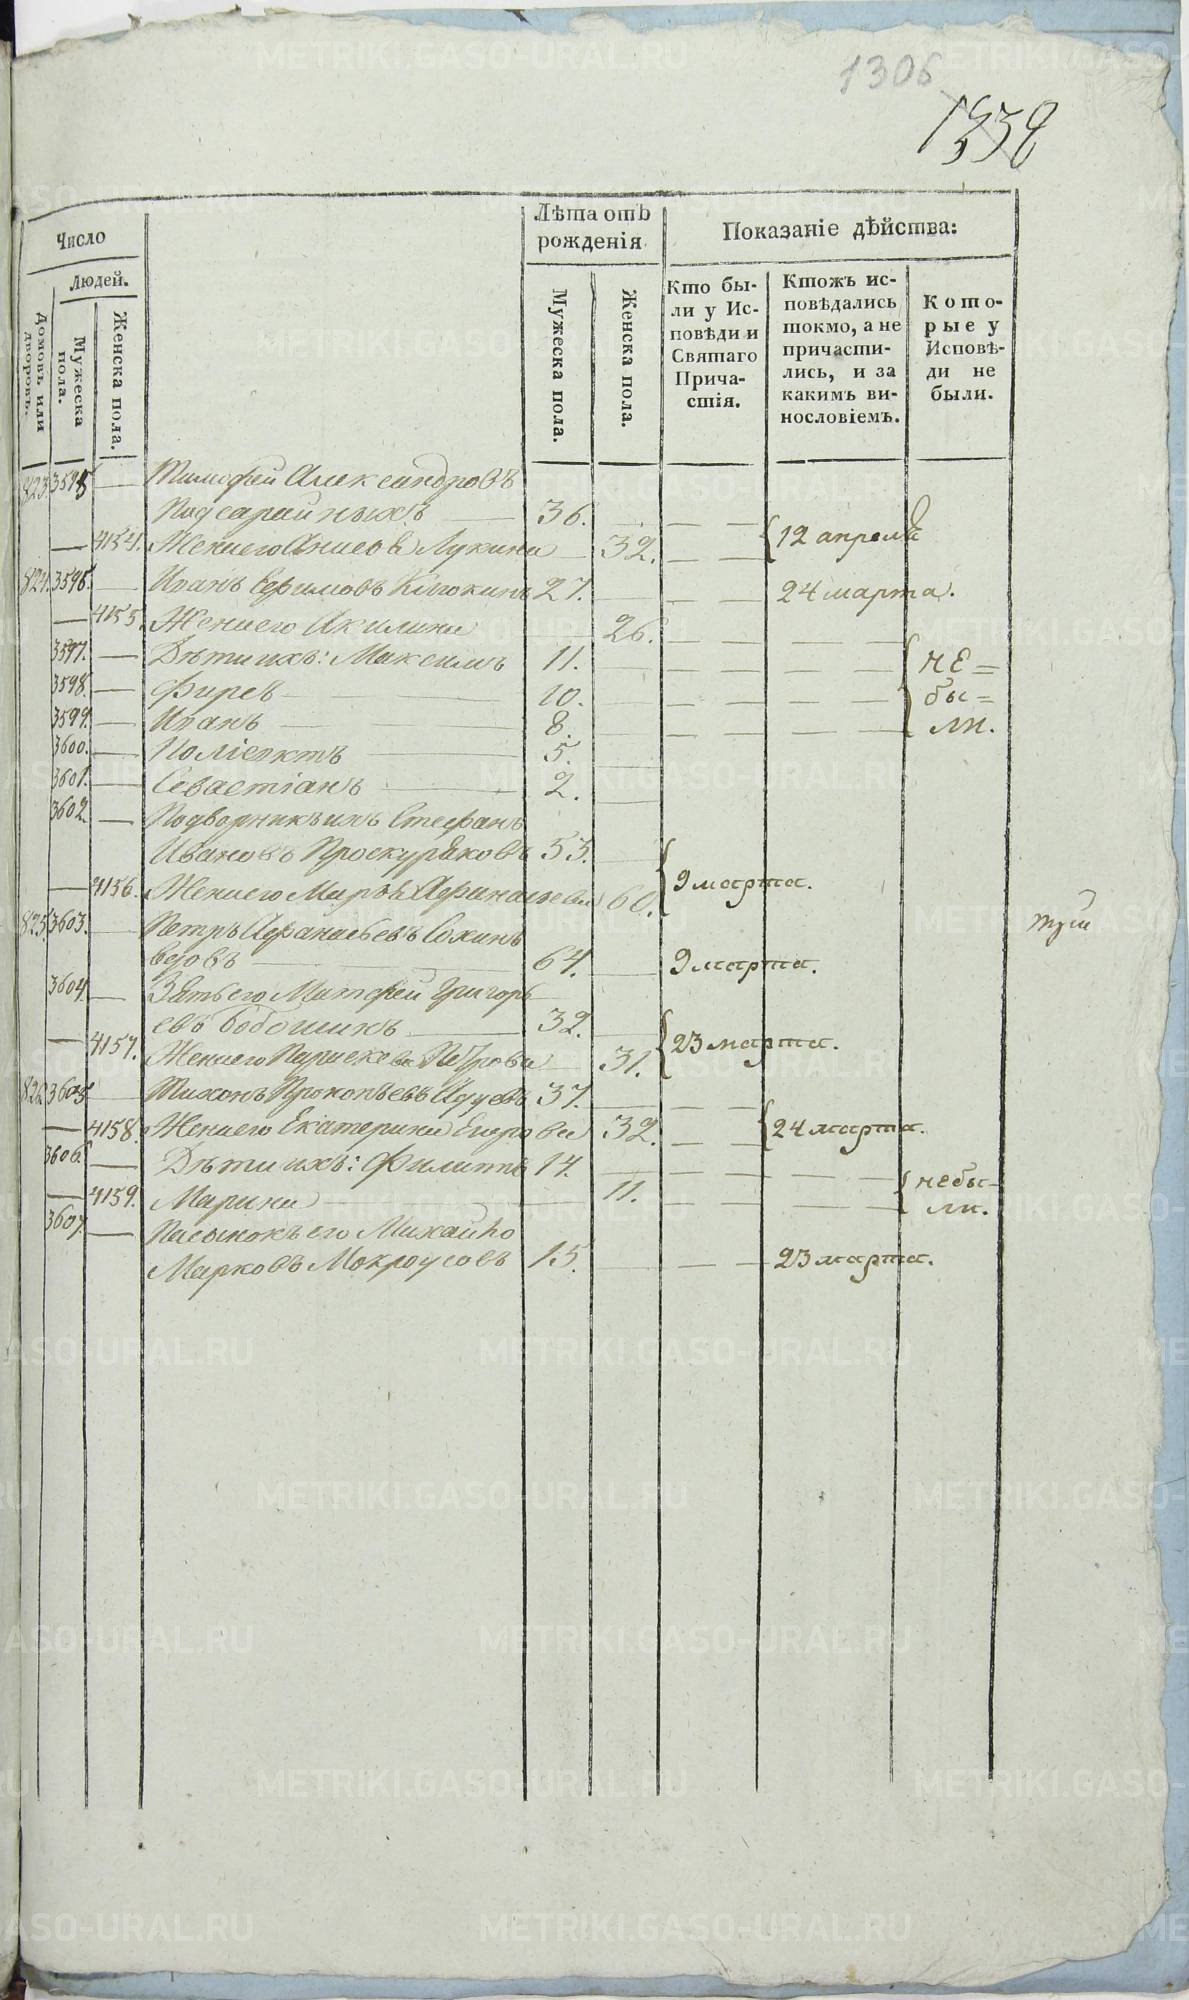 1306
Число
Людей.
Домовъ или дворовъ.
Мужеска пола.
Женска пола.
Лѣта отъ рожденія
Мужеска пола.
Женска пола.
Показаніе дѣйства:
Кто бы-
ли у Ис-
повѣди и
Святаго
Прича-
стія.
Ктожъ ис-
повѣдались
токмо, а не
причасти-
лись, и за
какимъ ви-
нословіемъ.
Кото-
рые у
Исповѣ-
ди не
были.
823. 3595 Тимофей Александровъ
Подсарайныхъ 36.
4154. Жена его Анисья Лукина 32. 12 апреля
824. 3596. Иванъ Ефимовъ Клюкинъ 27. 24 марта.
4155. Жена его Акилина 26.
3597. Дѣти ихъ: Максимъ 11. не=
3598. Фирсъ 10. бы=
3599. Иванъ 8. ли.
3600. Поліектъ 5.
3601. Севастіанъ 2.
3602 Подворникъ ихъ Стефанъ
Ивановъ Проскуряковъ 53.
4156. Жена его Марѳа Афанасьева 60. 9 марта.
825. 3603. Петръ Афанасьевъ
64. 9 марта.
3604. Зять его Матфей Григорь
евъ 32.
4157. Жена его Параскева Петрова 31. 23 марта.
826 3605 Тихонъ Прокопьевъ 37.
4158. Жена его Екатерина Егорова 32. 24 марта.
3606. Дѣти ихъ: Филиппъ 14.
4159. Марина 11. небы-
ли.
3607. Пасынокъ его Михайло
Марковъ Мокроусовъ 15. 23 марта.
METRIKI.GASO-URAL.RU